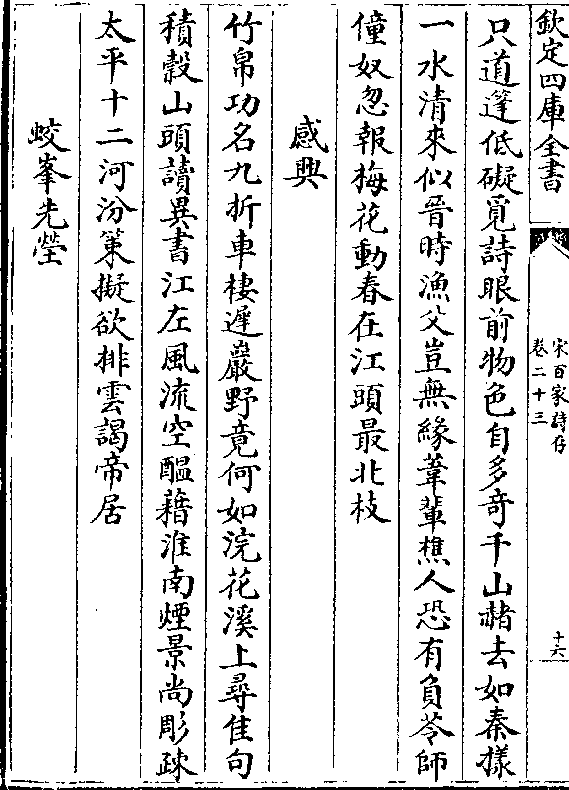 欽定四庫全書
宋百家詩存
卷二十三
十六
只道篷低礙覓詩眼前物色自多奇千山赭去如秦樣
一水清來似晉時漁父豈無緣葦輩樵人恐有負苓師
僮奴忽報梅花動春在江頭最北枝
感興
竹帛功名九折車棲遲巖野竟何如浣花溪上尋佳句
積穀山頭讀異書江左風流空醞藉淮南煙景尚彫疎
太平十二河汾策擬欲排雲謁帝居
蛟峯先塋